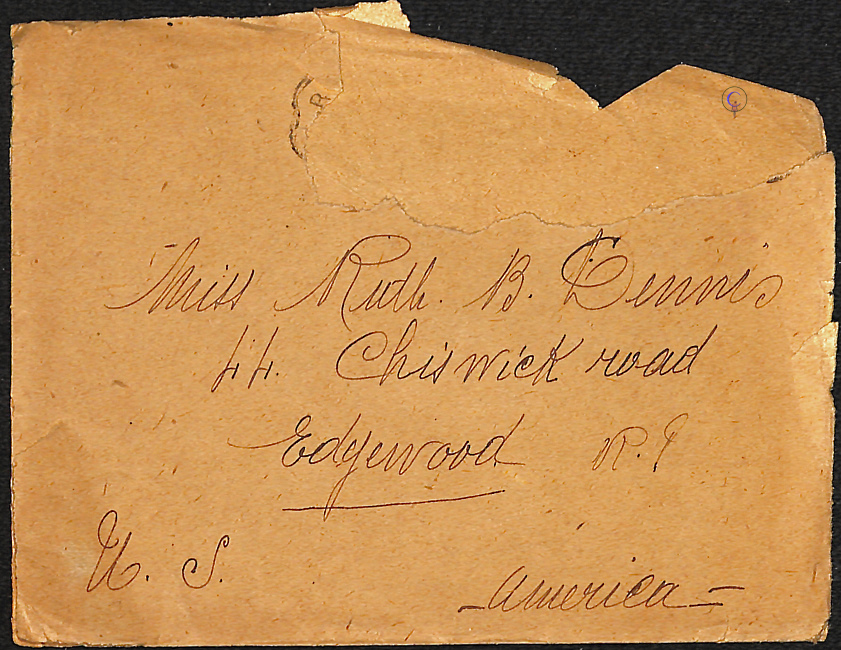 R
Miss Ruth. B. Dennis
44. Chiswick road
Edgewood R. I
U. S.
America